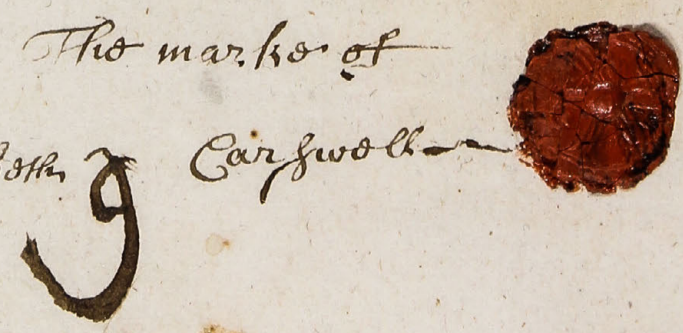 The marke of
eth 9 Carswell